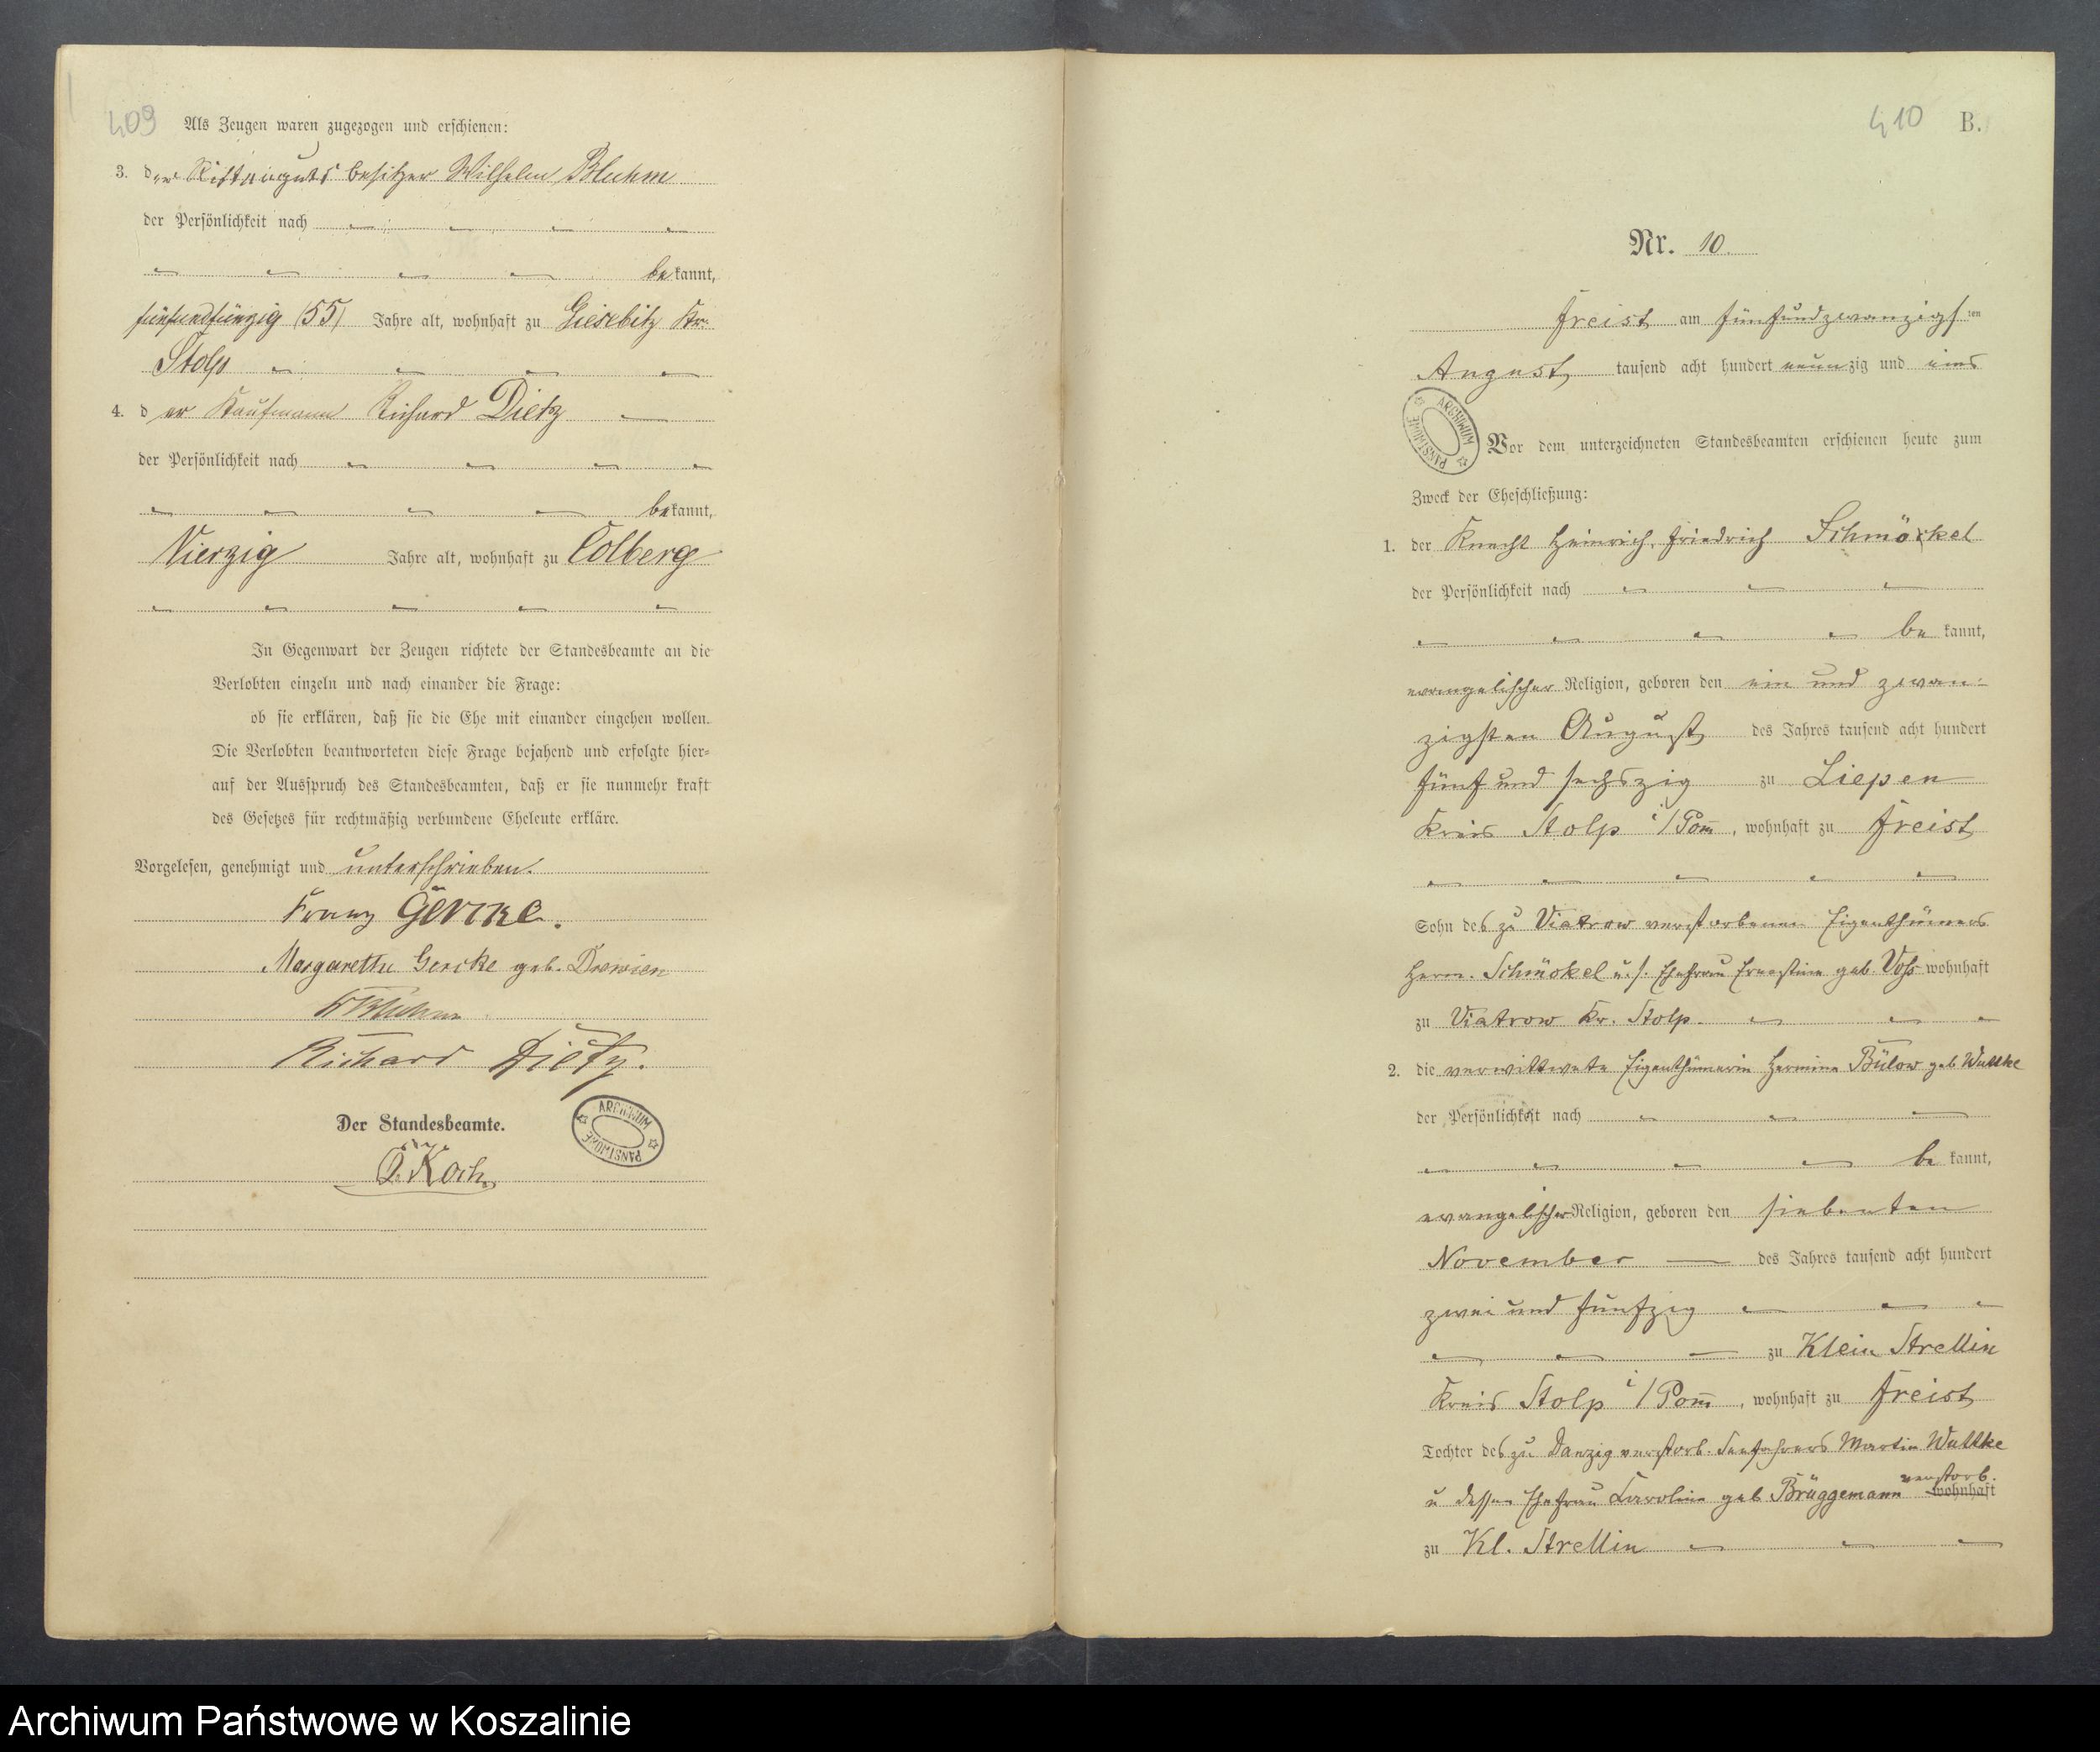 409
Als Zeugen waren zugezogen und erschienen:
3. der Rittergutsbesitzer Wilhelm Bluhm
der Persönlichkeit nach
bekannt,
fünfundfünzig (55) Jahre alt, wohnhaft zu Giesebitz Kr.
Stolp
4. der Kaufmann Richard Dietz
der Persönlichkeit nach
bekannt,
Vierzig Jahre alt, wohnhaft zu Colberg
In Gegenwart der Zeugen richtete der Standesbeamte an die
Verlobten einzeln und nach einander die Frage:
ob sie erklären, daß sie die Ehe mit einander eingehen wollen.
Die Verlobten beantworteten diese Frage bejahend und erfolgte hier-
auf der Ausspruch des Standesbeamten, daß er sie nunmehr kraft
des Gesetzes für rechtmäßig verbundene Eheleute erkläre.
Vorgelesen, genehmigt und unterschrieben.
Franz Gercke.
Margarethe Gercke geb. Drewien
Bluhm
Richard Dietz.
Der Standesbeamte.
ARCHIWUM PAŃSTWOWE
Koch
410 B.
Nr. 10.
Freist am fünfundzwanzigsten
August tausend acht hundert neunzig und eins
ARCHIWUM PAŃSTWOWE
Vor dem unterzeichneten Standesbeamten erschienen heute zum
Zweck der Eheschließung:
1. der Knecht Heinrich Friedrich Schmöckel
der Persönlichkeit nach
bekannt,
evangelischer Religion, geboren den ein und zwan-
zigsten August des Jahres tausend acht hundert
fünf und sechszig zu Liepen
Kreis Stolp i/Pom, wohnhaft zu Freist
Sohn des zu Viatrow verstorbenen Eigenthümers
Herm. Schmökel u. s. Ehefrau Ernestine geb. Voss wohnhaft
zu Viatrow Kr. Stolp
2. die verwittwete Eigenthümerin Hermine Bülow geb Wuttke
der Persönlichkeit nach
bekannt,
evangelischer Religion, geboren den siebenten
November des Jahres tausend acht hundert
zwei und fünfzig
zu Klein Strellin
Kreis Stolp i/Pom, wohnhaft zu Freist
Tochter des zu Danzig verstorb. Seefahrers Martin Wuttke
u dessen Ehefrau Karoline geb Brüggemann verstorb. wohnhaft
zu Kl. Strellin
Archiwum Państwowe w Koszalinie